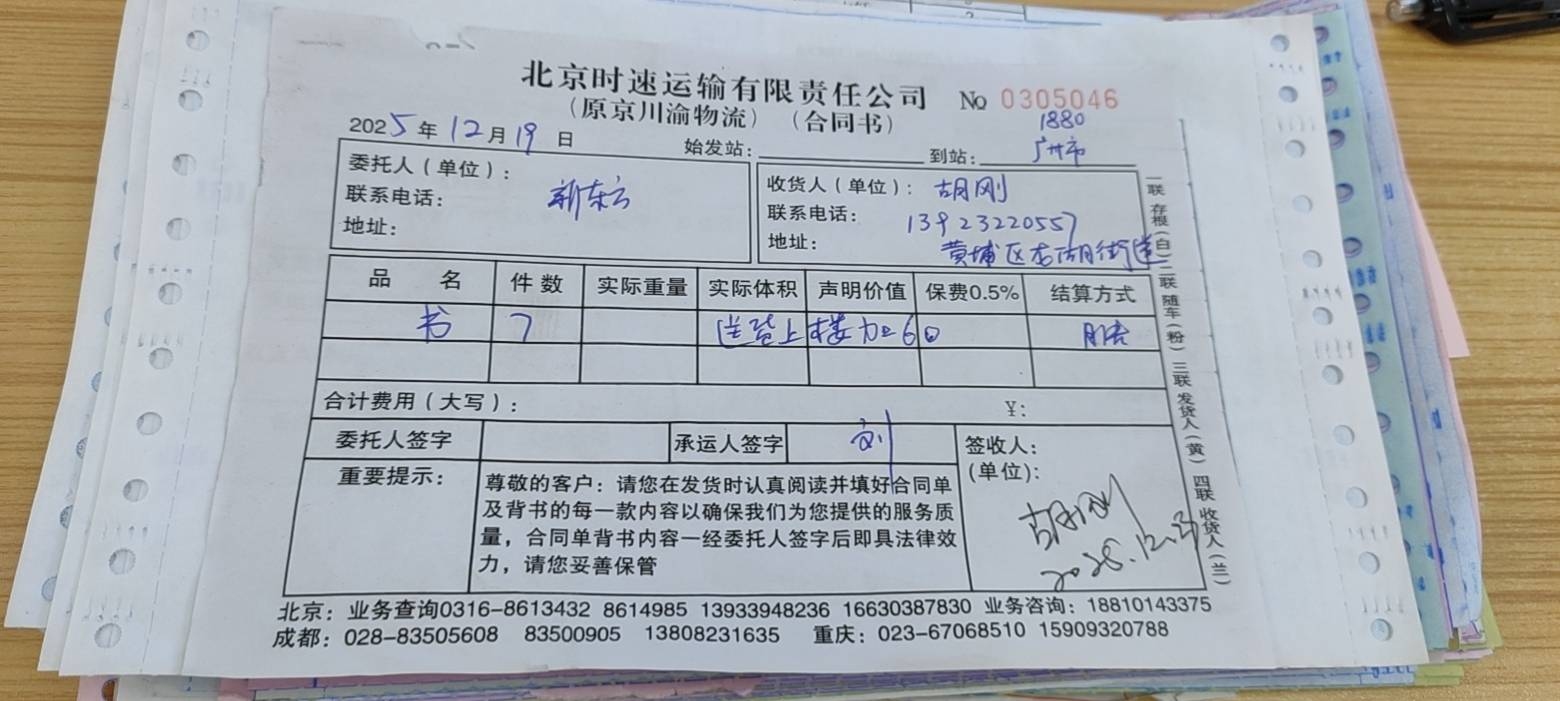 北京时速运输有限责任公司 No 0305046
（原京川渝物流）（合同书）
1880
2025年12月19日 始发站： 到站：广州市
委托人（单位）：
联系电话：
地址：
新东方
收货人（单位）：胡刚
联系电话：13923220557
地址：黄埔区龙湖街道
品 名 件数 实际重量 实际体积 声明价值 保费0.5% 结算方式
书 7 送货上楼加=60 月结
合计费用（大写）： ¥：
委托人签字 承运人签字 刘
签收人：
（单位）：
胡刚
重要提示：
尊敬的客户：请您在发货时认真阅读并填好合同单
及背书的每一款内容以确保我们为您提供的服务质
量，合同单背书内容一经委托人签字后即具法律效
力，请您妥善保管
一联 存根（白）二联 随车（粉）三联 发货人（黄）四联 收货人（兰）
北京：业务查询0316-8613432 8614985 13933948236 16630387830 业务咨询：18810143375
成都：028-83505608 83500905 13808231635 重庆：023-67068510 15909320788